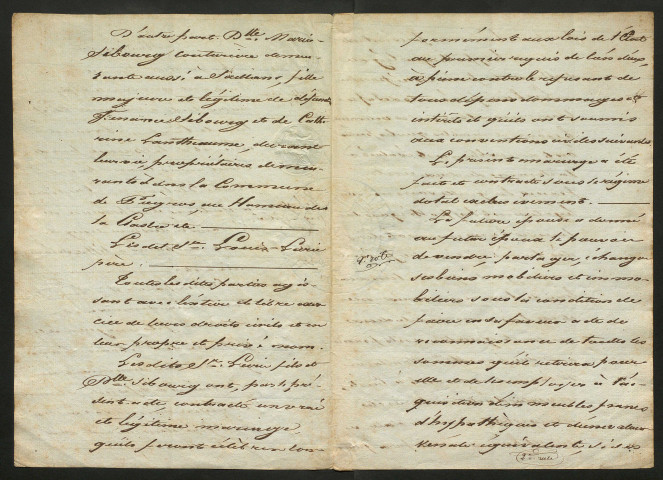 D'autre part. Dlle. Marie
Sibourg couturière demeu
rante aussi à Saillans, fille
majeure et légitime de défunts
Sibourg et de Cathe
rine Lantheaume, de vivant
propriétaires demeu
rants dans la Commune
de au Hameau de
la
Ledit Sr. Louis
père.
Toutes les dites parties agis
sant avec l'active et libre exer
cice de leurs droits civils et en
leur propre et privé nom.
Lesdits Sr. fils et
Dlle Sibourg ont, par le pré
sent acte contracté un vrai
et légitime mariage
qu'ils feront célébrer con
formément aux lois de l'État
au premier requis de l'un d'eux,
à peine contre le refusant de
tous dépens dommages et
intérêts et qu'ils ont soumis
aux conventions civiles suivantes
Le présent mariage a été
fait et contracté sous le régime
dotal exclusivement.
La future épouse a donné
au futur époux le pouvoir
de vendre, partager, échanger
ses biens mobiliers et immo
biliers sous la condition de
faire en sa faveur acte de
reconnaissance de toutes les
sommes qu'il retirera pour
elle et de les employer à l'ac
quisition d'immeubles francs
d'hypothèques et d'une valeur
équivalente, si